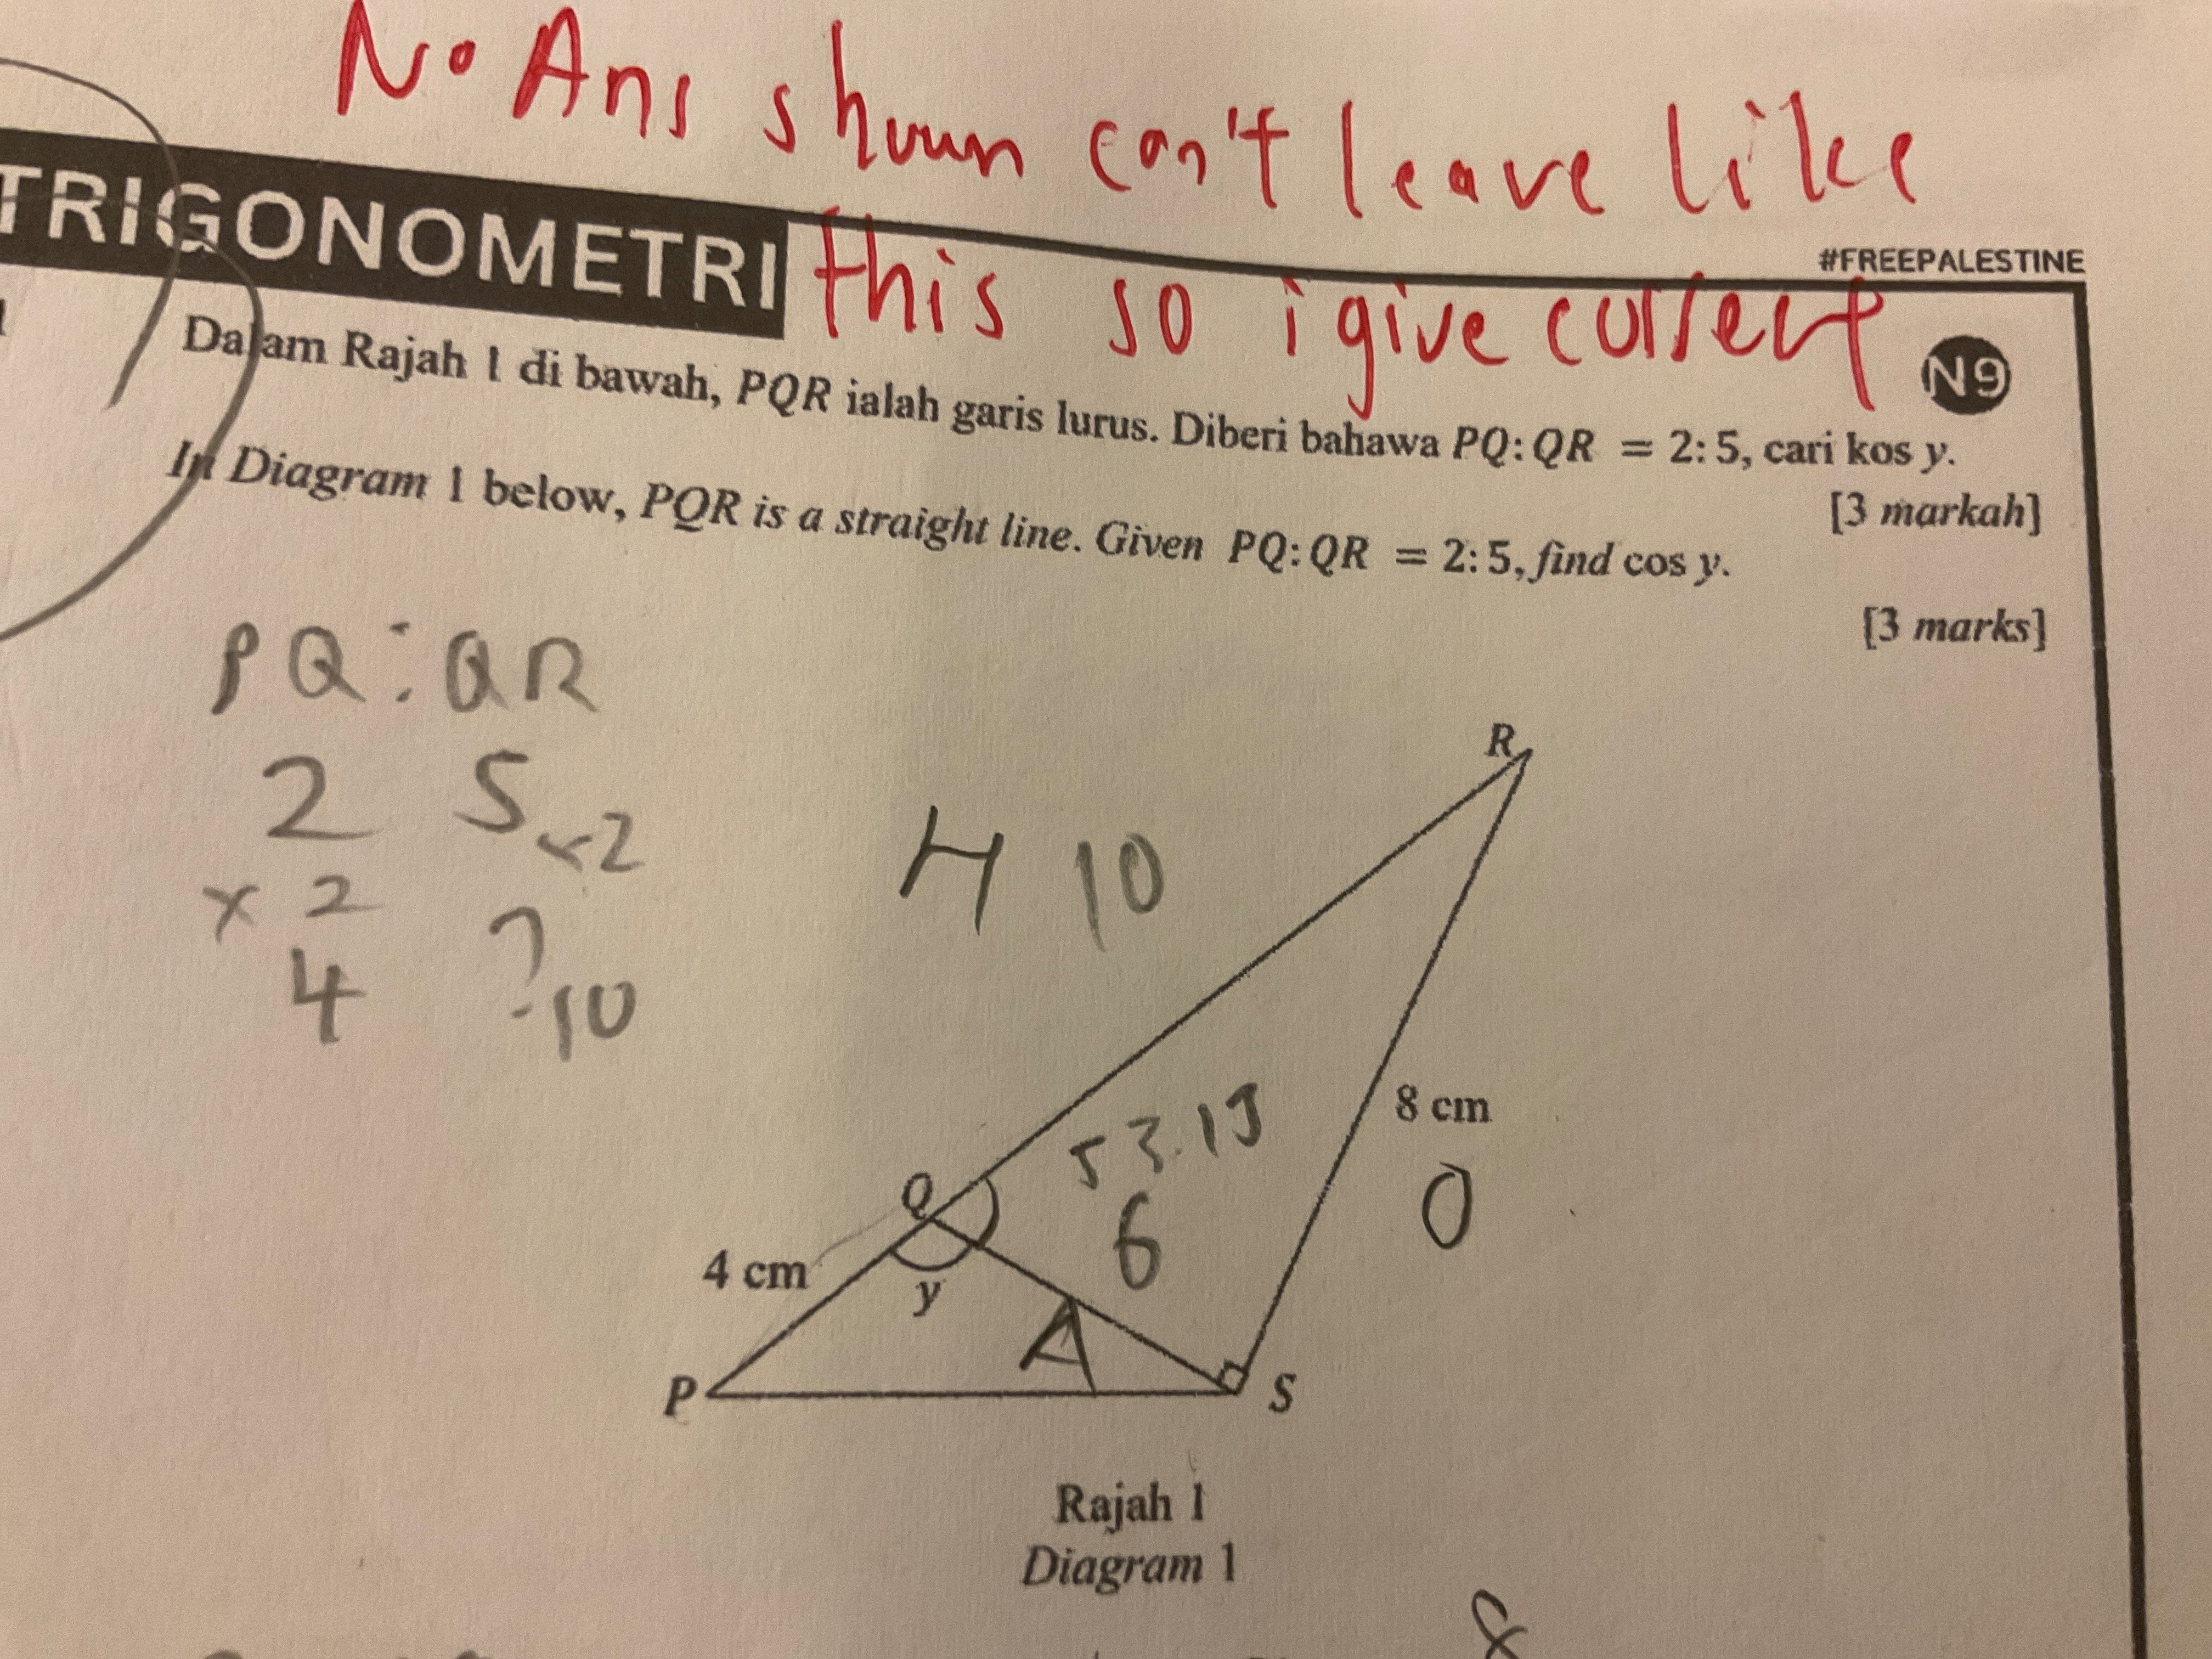 No Ans shown can't leave like
TRIGONOMETRI
this so i give correct
#FREEPALESTINE
N9
Dalam Rajah 1 di bawah, PQR ialah garis lurus. Diberi bahawa PQ:QR = 2:5, cari kos y.
[3 markah]
In Diagram 1 below, PQR is a straight line. Given PQ:QR = 2:5, find cos y.
[3 marks]
PQ:QR
2 5 ×2
× 2
4 ? 10
H 10
R
8 cm
O
53.13
6
Q
4 cm
y
A
P
S
Rajah 1
Diagram 1
8